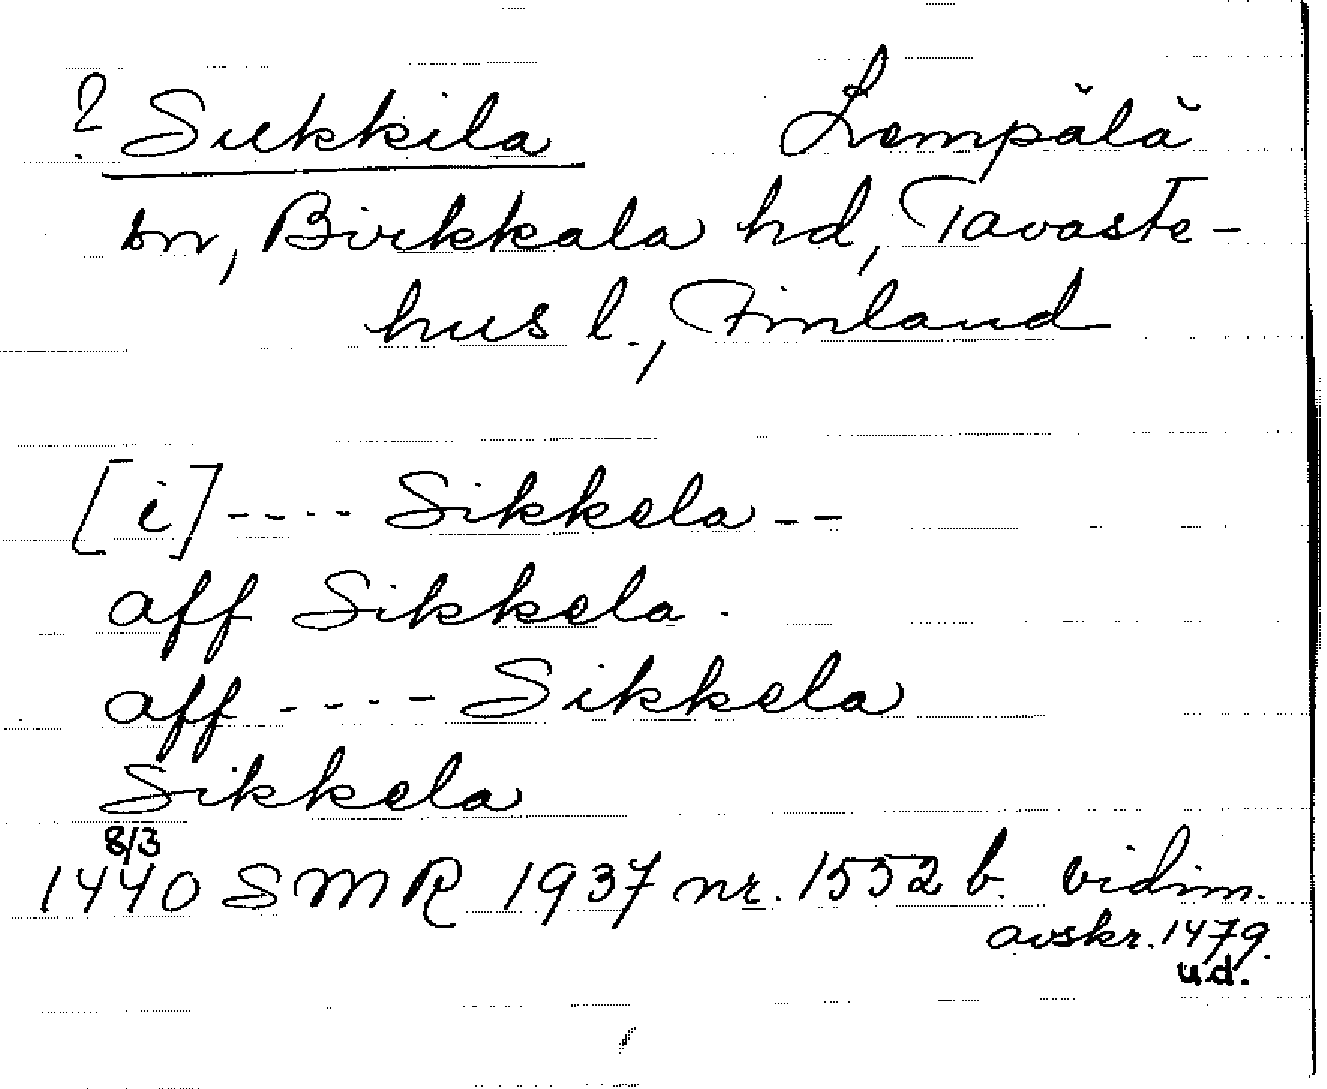 ? Sukkila Lempälä
sn, Birkkala hd, Tavaste-
hus l., Finland
[i] ---- Sikkela --
aff Sikkela.
aff ---- Sikkela
Sikkela
8/3
1440 SMR 1937 nr. 1552 b. vidim.
avskr. 1479.
u.d.